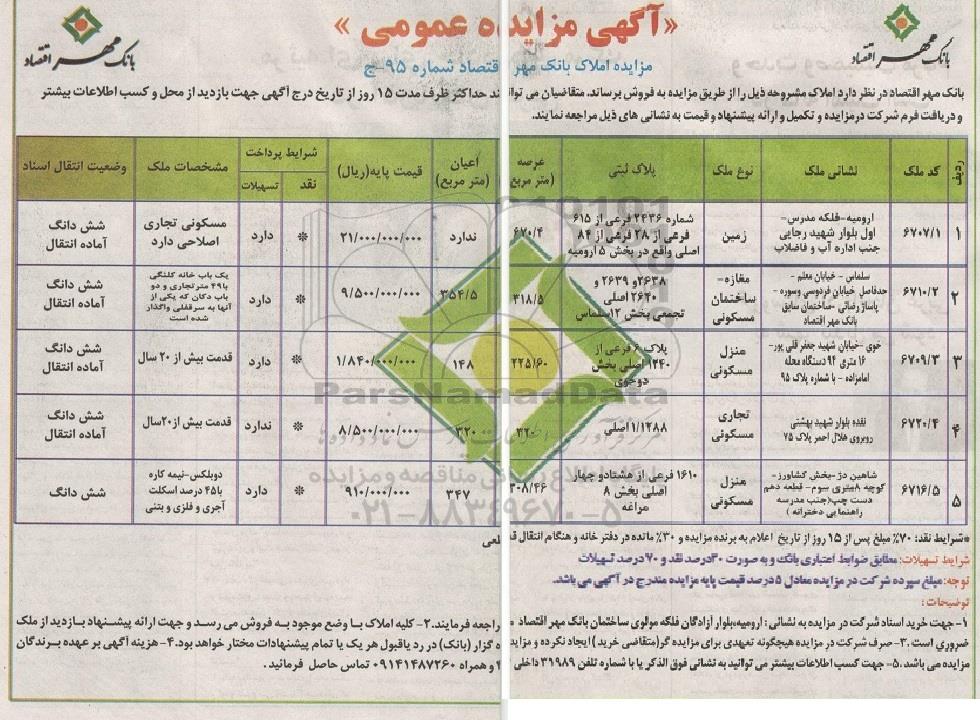 «آگهی مزایده عمومی»
مزایده املاک بانک مهر اقتصاد شماره ۹۵-ج
بانک مهر اقتصاد
بانک مهر اقتصاد
بانک مهر اقتصاد در نظر دارد املاک مشروحه ذیل را از طریق مزایده به فروش برساند. متقاضیان می توانند حداکثر ظرف مدت ۱۵ روز از تاریخ درج آگهی جهت بازدید از محل و کسب اطلاعات بیشتر
و دریافت فرم شرکت در مزایده و تکمیل و ارائه پیشنهاد و قیمت به نشانی های ذیل مراجعه نمایند.
ردیف کد ملک نشانی ملک نوع ملک پلاک ثبتی عرصه (متر مربع) اعیان (متر مربع) قیمت پایه(ریال) شرایط پرداخت نقد تسهیلات مشخصات ملک وضعیت انتقال اسناد
۱ ۶۷۰۷/۱ ارومیه-فلکه مدرس- اول بلوار شهید رجایی جنب اداره آب و فاضلاب زمین شماره ۲۴۳۶ فرعی از ۶۱۵ فرعی از ۲۸ فرعی از ۸۴ اصلی واقع در بخش ۵ ارومیه ۶۷۰/۴ ندارد ۲۱/۰۰۰/۰۰۰/۰۰۰ * دارد مسکونی تجاری اصلاحی دارد شش دانگ آماده انتقال
۲ ۶۷۱۰/۲ سلماس - خیابان معلم - حدفاصل خیابان فردوسی و سوره - پاساژ رضائی -ساختمان سابق بانک مهر اقتصاد مغازه- ساختمان مسکونی ۲۶۳۸و ۲۶۳۹ و ۲۶۴۰ اصلی تجمعی بخش ۱۲سلماس ۳۱۸/۵ ۳۵۴/۵ ۹/۵۰۰/۰۰۰/۰۰۰ * دارد یک باب خانه کلنگی با۴۹ متر تجاری و دو باب دکان که یکی از آنها به سرقفلی واگذار شده است شش دانگ آماده انتقال
۳ ۶۷۰۹/۳ خوی -خیابان شهید جعفر قلی پور- ۱۶ متری ۹۴ دستگاه محله امامزاده - با شماره پلاک ۹۵ منزل مسکونی پلاک ۶ فرعی از ۱۲۴۰ اصلی بخش دو خوی ۲۲۵/۶۰ ۱۴۸ ۱/۸۴۰/۰۰۰/۰۰۰ * دارد قدمت بیش از ۲۰ سال شش دانگ آماده انتقال
۴ ۶۷۲۰/۴ نقده بلوار شهید بهشتی روبروی هلال احمر پلاک ۷۵ تجاری مسکونی ۱/۱۲۸۸ اصلی ۳۲۰ ۳۲۰ ۸/۵۰۰/۰۰۰/۰۰۰ * ندارد قدمت بیش از ۲۰سال شش دانگ آماده انتقال
۵ ۶۷۱۶/۵ شاهین دژ-بخش کشاورز- کوچه ۸متری سوم- قطعه دهم دست چپ(جنب مدرسه راهنمایی دخترانه ) منزل مسکونی ۱۶۱۰ فرعی از هشتاد و چهار اصلی بخش ۸ مراغه ۳۰۸/۴۶ ۳۴۷ ۹۱۰/۰۰۰/۰۰۰ * دارد دوبلکس-نیمه کاره با۴۵ درصد اسکلت آجری و فلزی و بتنی شش دانگ
*شرایط نقد: ۷۰٪ مبلغ پس از ۱۵ روز از تاریخ اعلام به برنده مزایده و ۳۰٪ مانده در دفتر خانه و هنگام انتقال قطعی
شرایط تسهیلات: مطابق ضوابط اعتباری بانک و به صورت ۳۰درصد نقد و ۷۰ درصد تسهیلات
توجه: مبلغ سپرده شرکت در مزایده معادل ۵ درصد قیمت پایه مزایده مندرج در آگهی می باشد.
توضیحات :
۱- جهت خرید اسناد شرکت در مزایده به نشانی : ارومیه،بلوار آزادگان فلکه مولوی ساختمان بانک مهر اقتصاد مراجعه فرمایند.۲- کلیه املاک با وضع موجود به فروش می رسد و جهت ارائه پیشنهاد بازدید از ملک
ضروری است .۳- صرف شرکت در مزایده هیچگونه تعهدی برای مزایده گر(متقاضی خرید ) ایجاد نکرده و مزایده گزار (بانک) در رد یا قبول هر یک یا تمام پیشنهادات مختار خواهد بود.۴- هزینه آگهی بر عهده برندگان
مزایده می باشد .۵- جهت کسب اطلاعات بیشتر می توانید به نشانی فوق الذکر یا با شماره تلفن ۳۱۹۸۹ داخلی و همراه ۰۹۱۴۱۴۸۷۲۶۰ تماس حاصل فرمائید.
ParsNamadData
۰۲۱-۸۸۳۴۹۶۷۰-۵